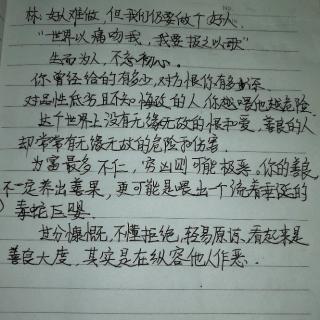 林:好人难做,但我们仍要做个好人。
"世界以痛吻我,我要报之以歌"
生而为人,不忘初心。
你曾经给的有多少,对方恨你有多深。
对品性低劣且不知悔改的人,你越喂他越危险.
这个世界上没有无缘无故的恨和爱,善良的人
却常常有无缘无故的危险和伤害.
为富最多不仁,穷凶则可能极恶。你的善良
不一定养出善果,更可能是喂出一个流着垂涎的
毒蛇巨婴.
过分慷慨,不懂拒绝,轻易原谅,看起来是
善良大度,其实是在纵容他人作恶.